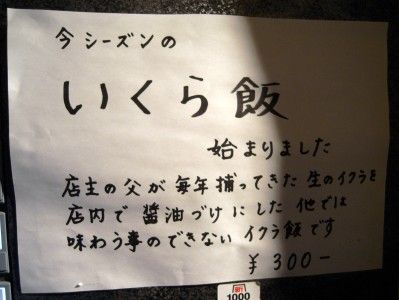 今シーズンの
いくら飯
始まりました
店主の父が毎年捕ってきた生のイクラを
店内で醤油づけにした他では
味わう事のできないイクラ飯です
¥300-
1000